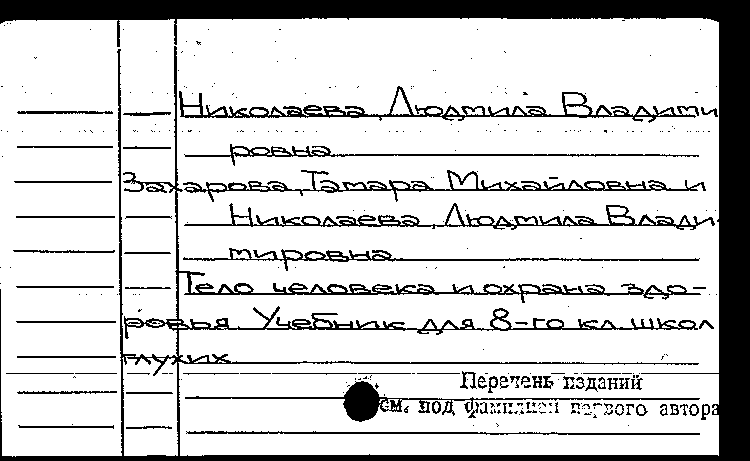 Николаева, Людмила Владими
ровна
Захарова, Тамара Михайловна и
Николаева, Людмила Влади-
мировна
Тело человека и охрана здо-
ровья. Учебник для 8-го кл. школ
глухих
Перечень изданий
см. под фамилией первого автора